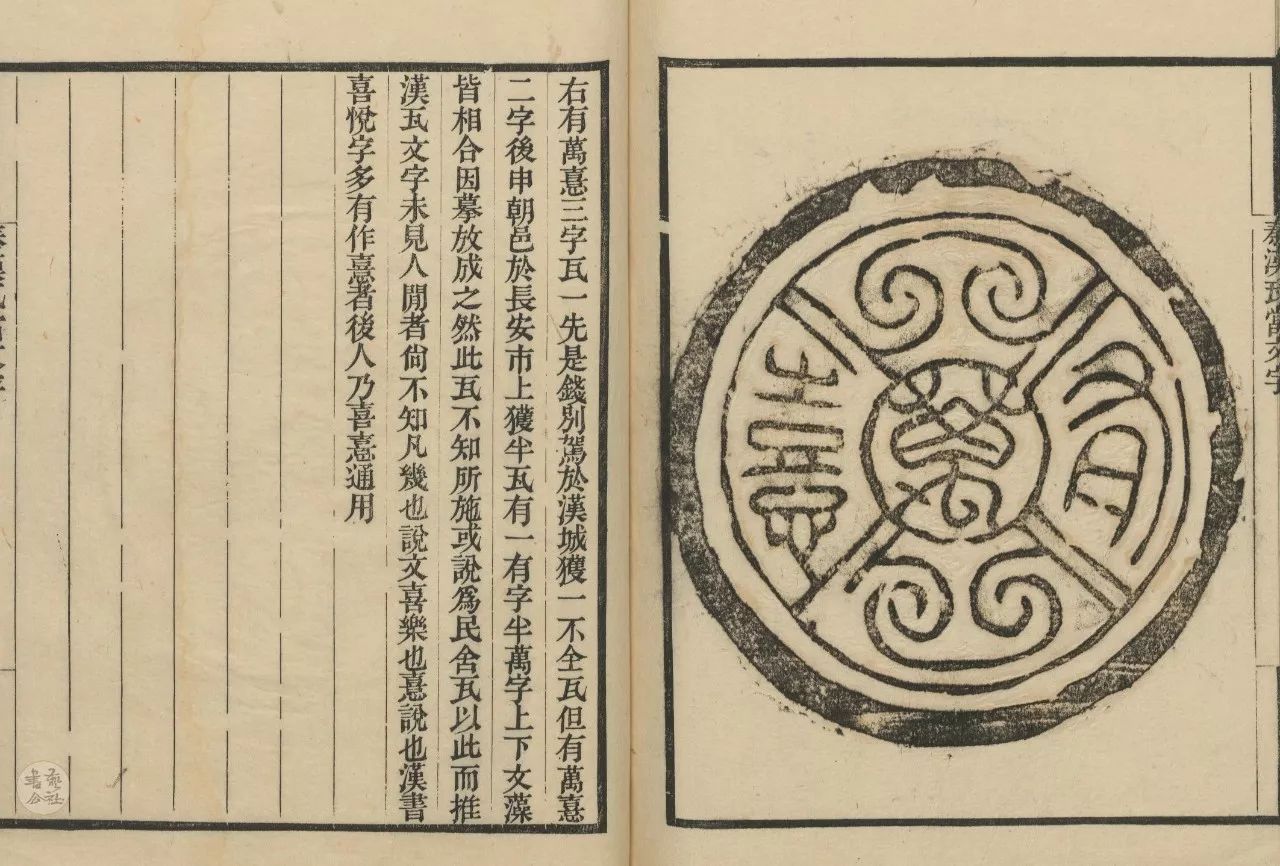 秦漢瓦當文字
有萬憙
右有萬憙三字瓦一先是錢別駕於漢城獲一不全瓦但有萬憙
二字後申朝邑於長安市上獲半瓦有一有字半萬字上下文藻
皆相合因摹放成之然此瓦不知所施或說爲民舍瓦以此而推
漢瓦文字未見人閒者尙不知凡幾也說文喜樂也憙說也漢書
喜悅字多有作憙者後人乃喜憙通用
書藝公社